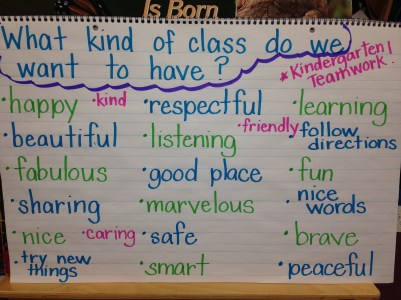 Is Born
What kind of class do we
want to have?
*Kindergarten!
Teamwork.
·happy ·kind ·respectful ·learning
·beautiful ·listening ·friendly ·follow
directions
·fabulous ·good place ·fun
·sharing ·marvelous ·nice
words
·nice ·caring ·safe ·brave
·try new
things ·smart ·peaceful